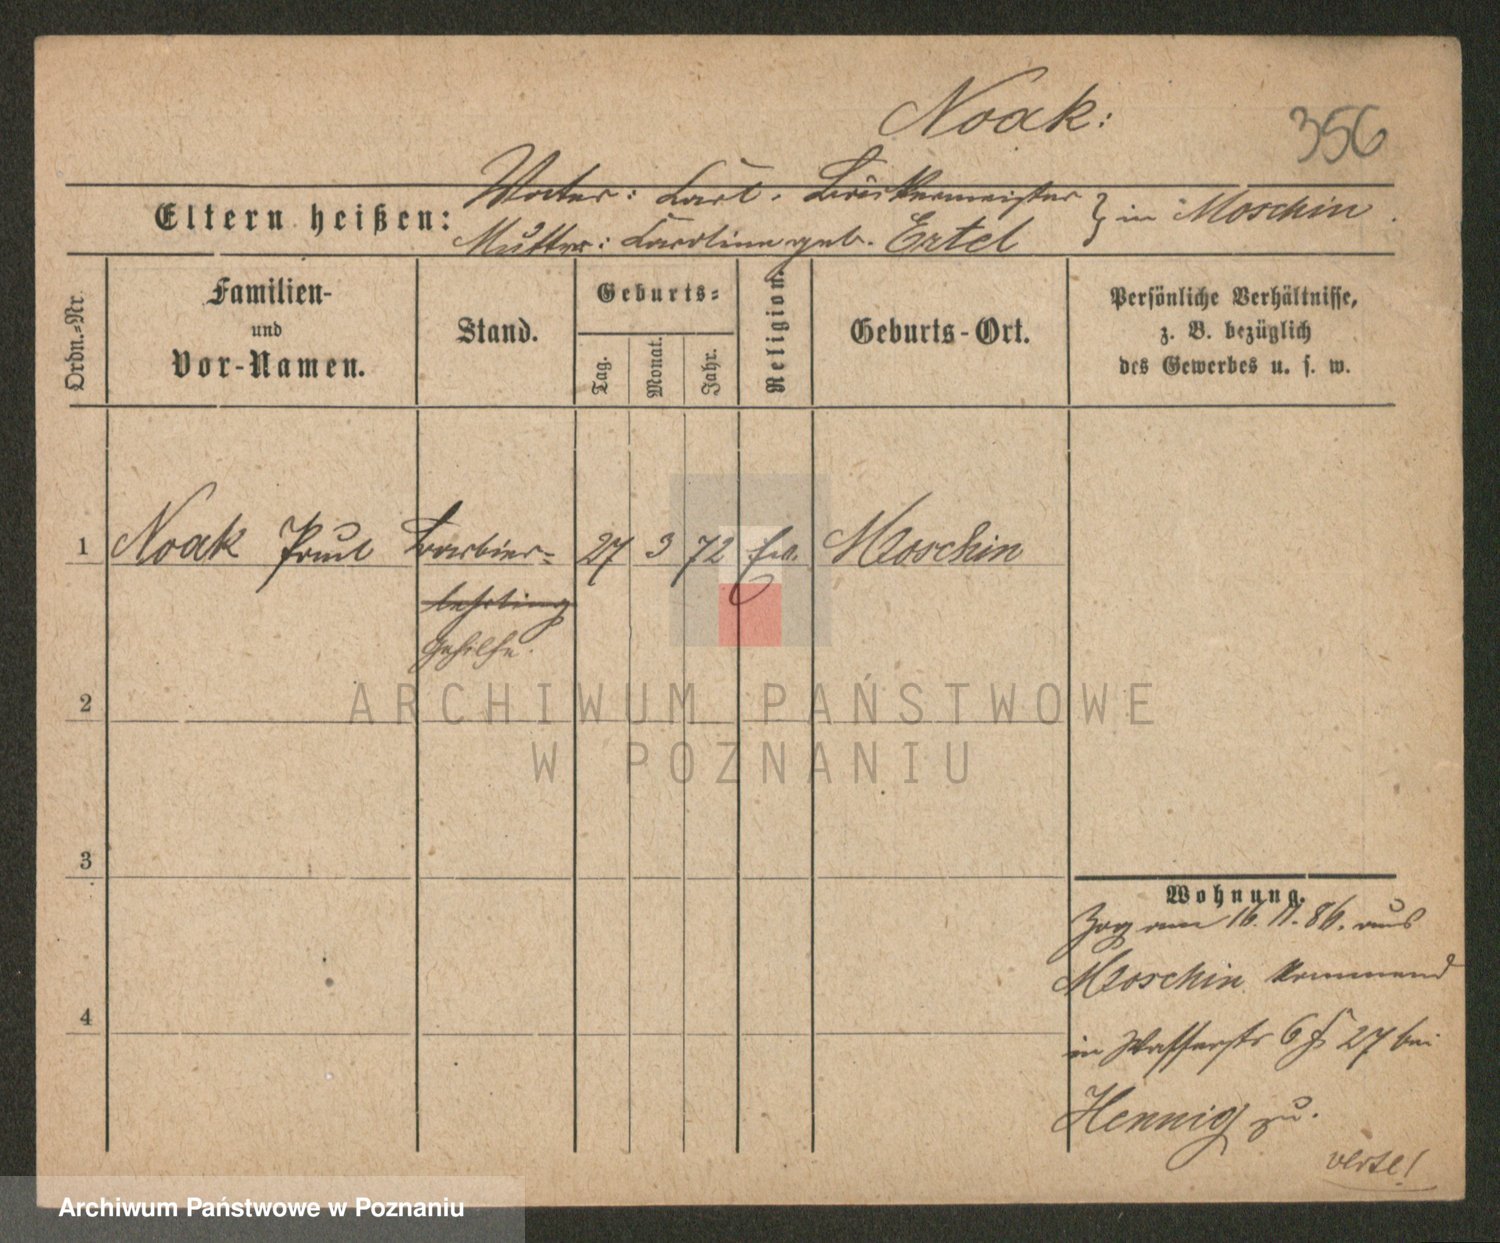 Noak:
356
Eltern heißen:
Vater: Carl. Bäckermeister
Mutter: Caroline geb. Ertel
} in Moschin.
Ordn.-Nr.
Familien-
und
Vor-Namen.
Stand.
Geburts-
Tag.
Monat.
Jahr.
Religion.
Geburts-Ort.
Persönliche Verhältnisse,
z. B. bezüglich
des Gewerbes u. s. w.
1 Noak Paul Barbier- 27 3 72 ev. Moschin
lehrling
Gehilfe.
2
3
4
Wohnung.
Zog am 16. 11. 86. aus
Moschin kommend
in Wasserstr 27 bei
Hennig zu.
verte!
ARCHIWUM PAŃSTWOWE
W POZNANIU
Archiwum Państwowe w Poznaniu